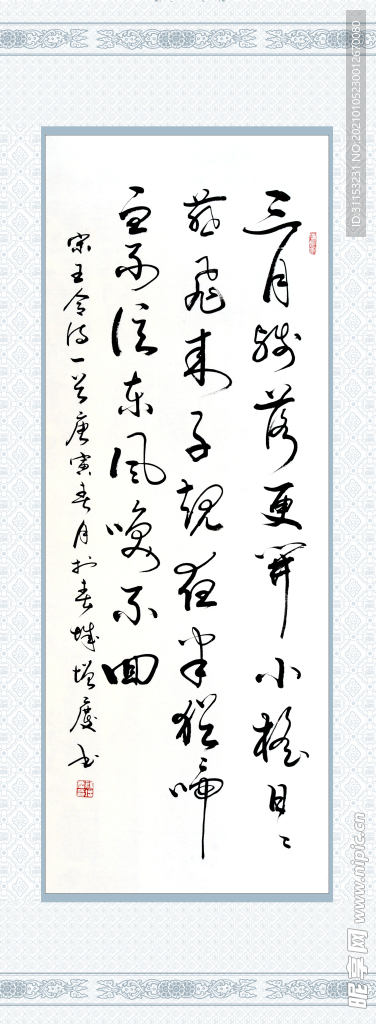 三月残落更開小檐日日
燕飛来子規夜半猶啼
血不信东风唤不回
宋王令诗一首庚寅春月於春城增庆书
ID:31153231 NO:20210105230012670080
昵享网 www.nipic.cn